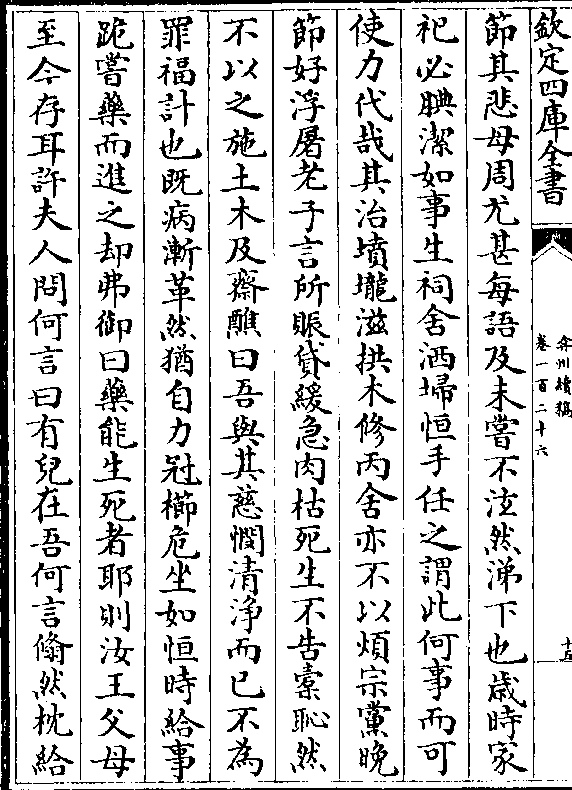 欽定四庫全書
弇州續稿
卷一百二十六
十五
節其悲母周尤甚每語及未嘗不泫然涕下也歲時家
祀必腆潔如事生祠舍洒埽恒手任之謂此何事而可
使力代哉其治墳壠滋拱木修丙舍亦不以煩宗黨晚
節好浮屠老子言所賑貸緩急肉枯死生不告橐恥然
不以之施土木及齋醮曰吾與其慈憫清淨而已不為
罪福計也既病漸革然猶自力冠櫛危坐如恒時給事
跪嘗藥而進之却弗御曰藥能生死者耶則汝王父母
至今存耳許夫人問何言曰有兒在吾何言翛然枕給